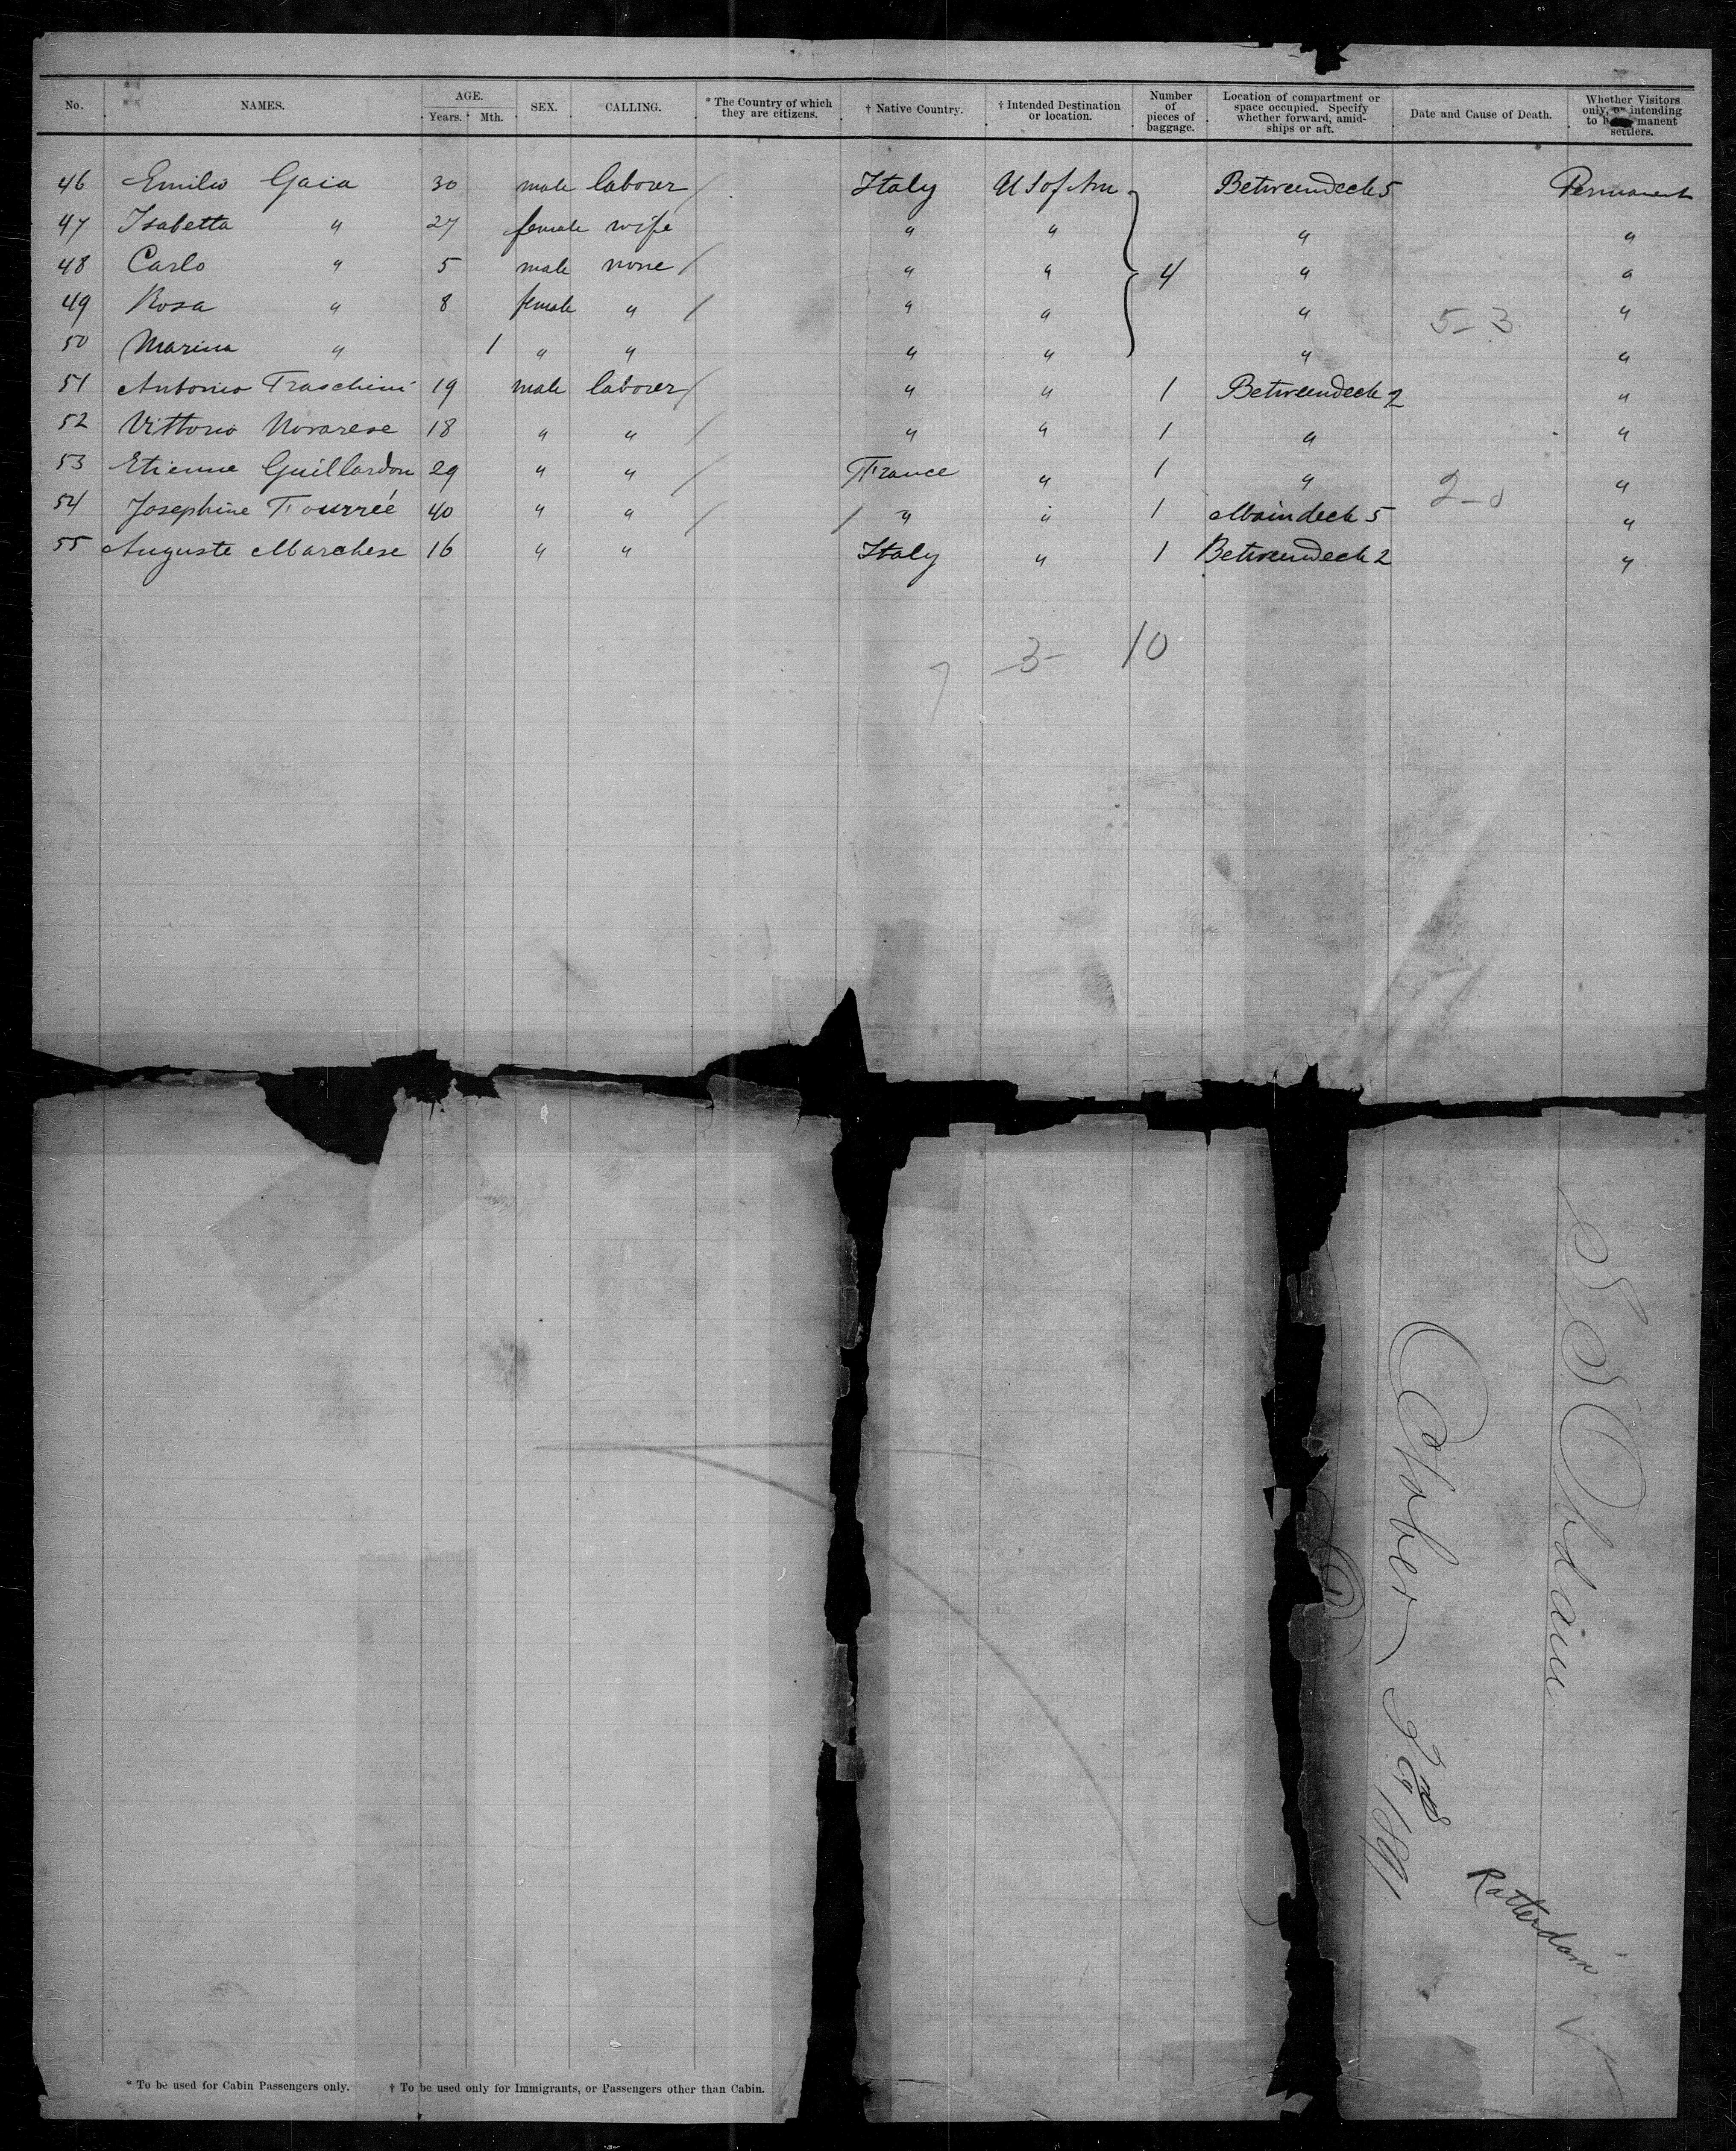 No. NAMES. AGE. Years. Mth. SEX. CALLING. * The Country of which they are citizens. † Native Country. † Intended Destination or location. Number of pieces of baggage. Location of compartment or space occupied. Specify whether forward, amid-ships or aft. Date and Cause of Death. Whether Visitors only, or intending to manent settlers.
46 Emilio Gaia 30 male labourer / Italy U S of Am Betweendeck 5 Permanent
47 Isabetta " 27 female wife " " " "
48 Carlo " 5 male none / " " 4 " "
49 Rosa " 8 female " / " " " 5-3 "
50 Marina " 1 " " " " " "
51 Antonio Fraschini 19 male labourer / " " 1 Betweendeck 2 "
52 Vittorio Novarese 18 " " / " " 1 " "
53 Etienne Guillardon 29 " " / France " 1 " "
54 Josephine Fourreé 40 " " / / " " 1 Maindeck 5 "
55 Auguste Marchese 16 " " Italy " 1 Betweendeck 2 "
3 10
S S Obdam
October 2nd 1891
Rotterdam
* To be used for Cabin Passengers only. † To be used only for Immigrants, or Passengers other than Cabin.